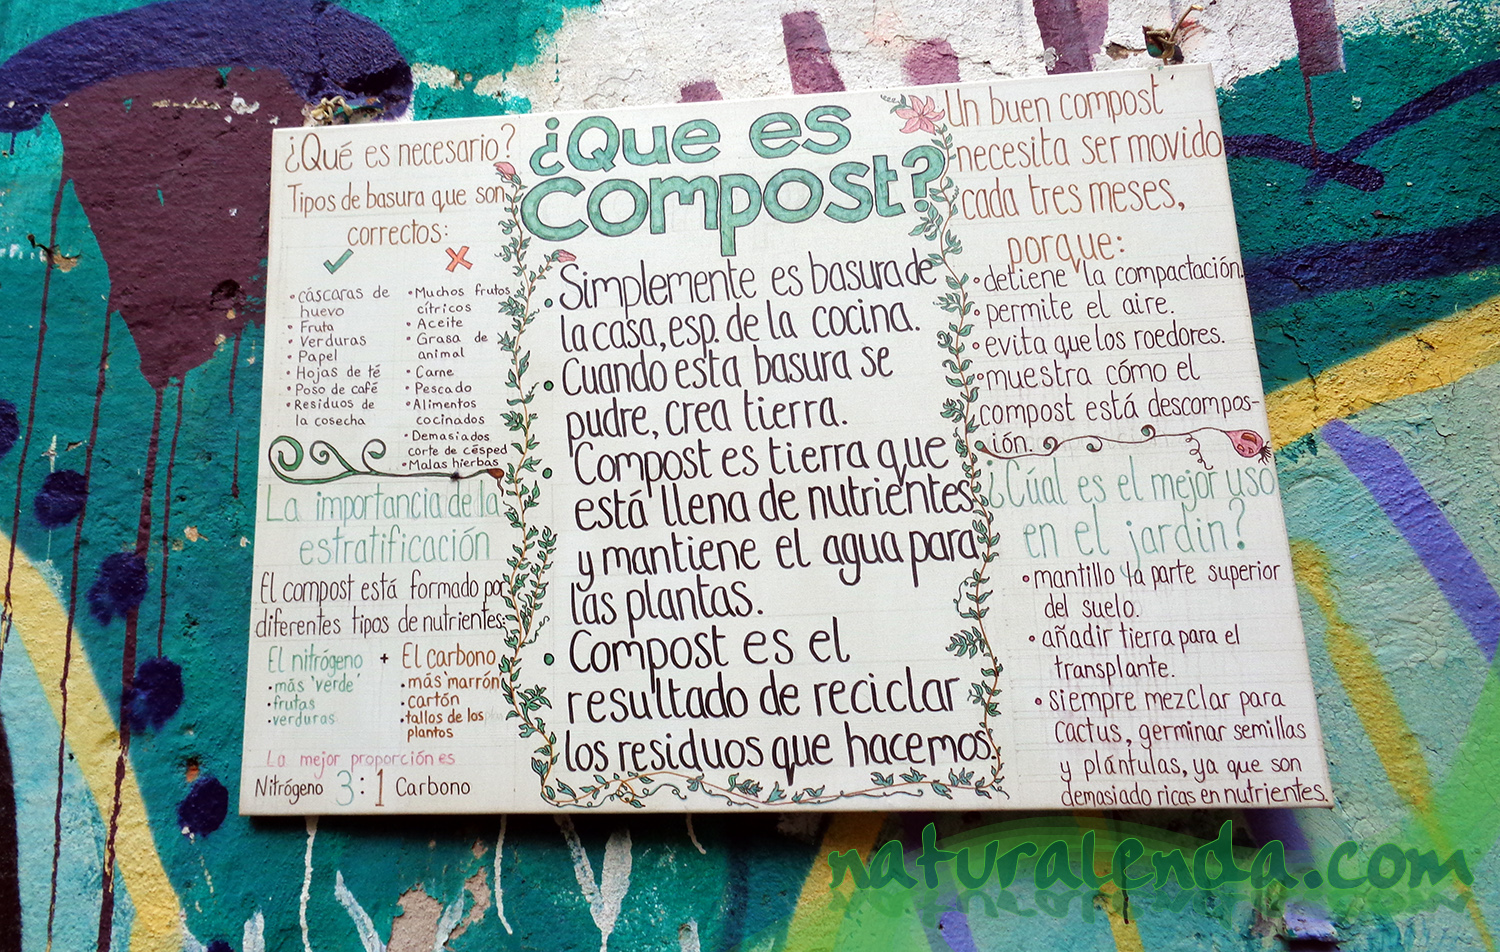 ¿Qué es necesario?
Tipos de basura que son
correctos:
• cáscaras de
huevo
• Fruta
• Verduras
• Papel
• Hojas de té
• Poso de café
• Residuos de
la cosecha
• Muchos frutos
cítricos
• Aceite
• Grasa de
animal
• Carne
• Pescado
• Alimentos
cocinados
• Demasiados
corte de césped
• Malas hierbas
La importancia de la
estratificación
El compost está formado por
diferentes tipos de nutrientes:
El nitrógeno + El carbono
• más 'verde'
• frutas
• verduras
• más 'marrón'
• cartón
• tallos de los
plantos
La mejor proporción es
Nitrógeno 3 : 1 Carbono
¿Que es
compost?
• Simplemente es basura de
la casa, esp. de la cocina.
• Cuando esta basura se
pudre, crea tierra.
• Compost es tierra que
está llena de nutrientes
y mantiene el agua para
las plantas.
• Compost es el
resultado de reciclar
los residuos que hacemos.
Un buen compost
necesita ser movido
cada tres meses,
porque:
• detiene la compactación.
• permite el aire.
• evita que los roedores.
• muestra cómo el
compost está descompos-
ión.
¿Cúal es el mejor uso
en el jardin?
• mantillo y la parte superior
del suelo.
• añadir tierra para el
transplante.
• siempre mezclar para
cactus, germinar semillas
y plántulas, ya que son
demasiado ricas en nutrientes.
naturalenda.com